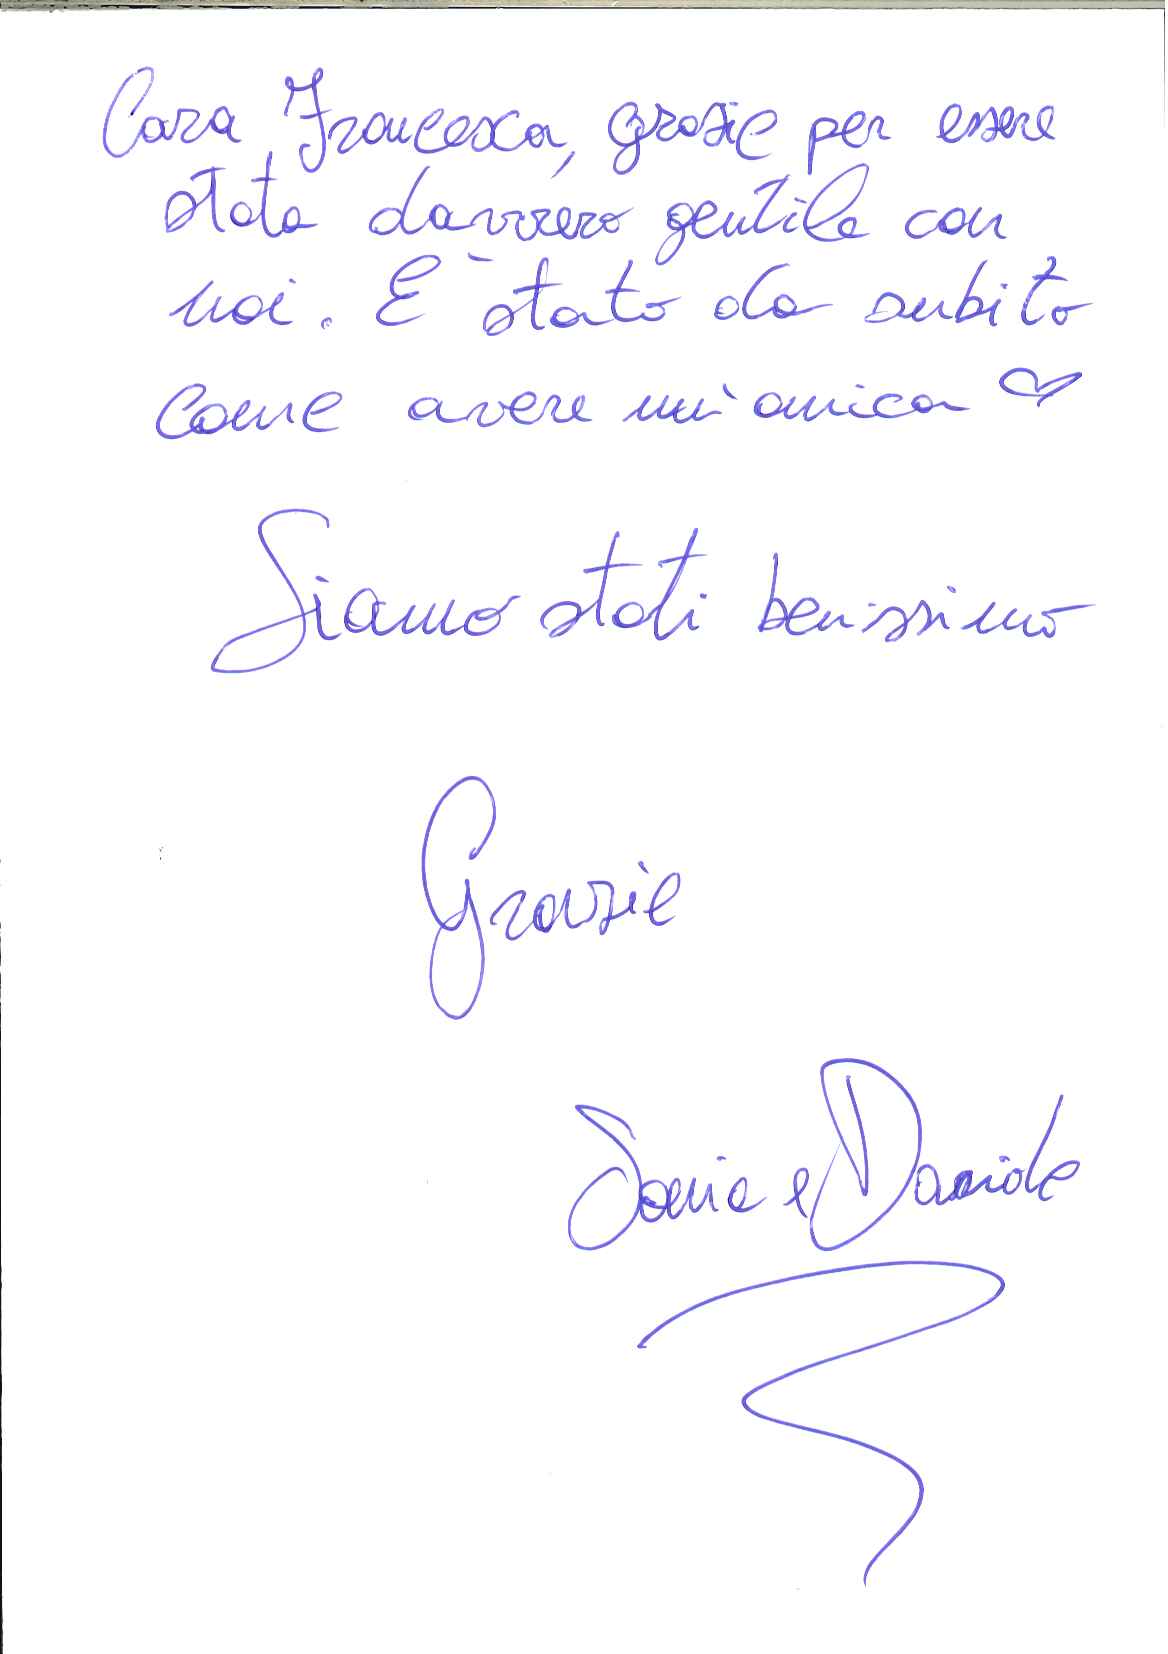 Cara Francesca, grazie per essere
stata davvero gentile con
noi. È stato da subito
come avere un'amica ♡
Siamo stati benissimo
Grazie
Sonia e Davide